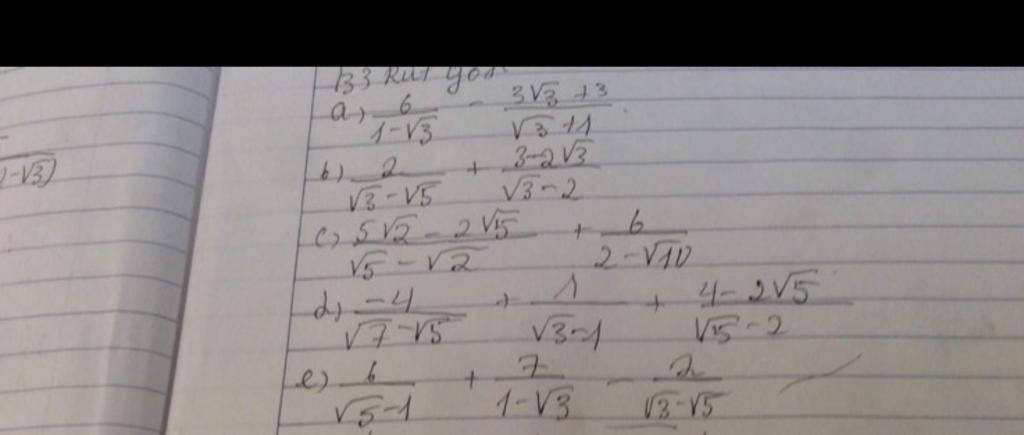 B3 Rút gọn
a) 6/(1-√3) - (3√3+3)/(√3+1)
2-√3)
b) 2/(√3-√5) + (3-2√3)/(√3-2)
c) (5√2-2√5)/(√5-√2) + 6/(2-√10)
d) -4/(√7-√5) + 1/(√3-1) + (4-2√5)/(√5-2)
e) 6/(√5-1) + 7/(1-√3) - 2/(√3-√5)